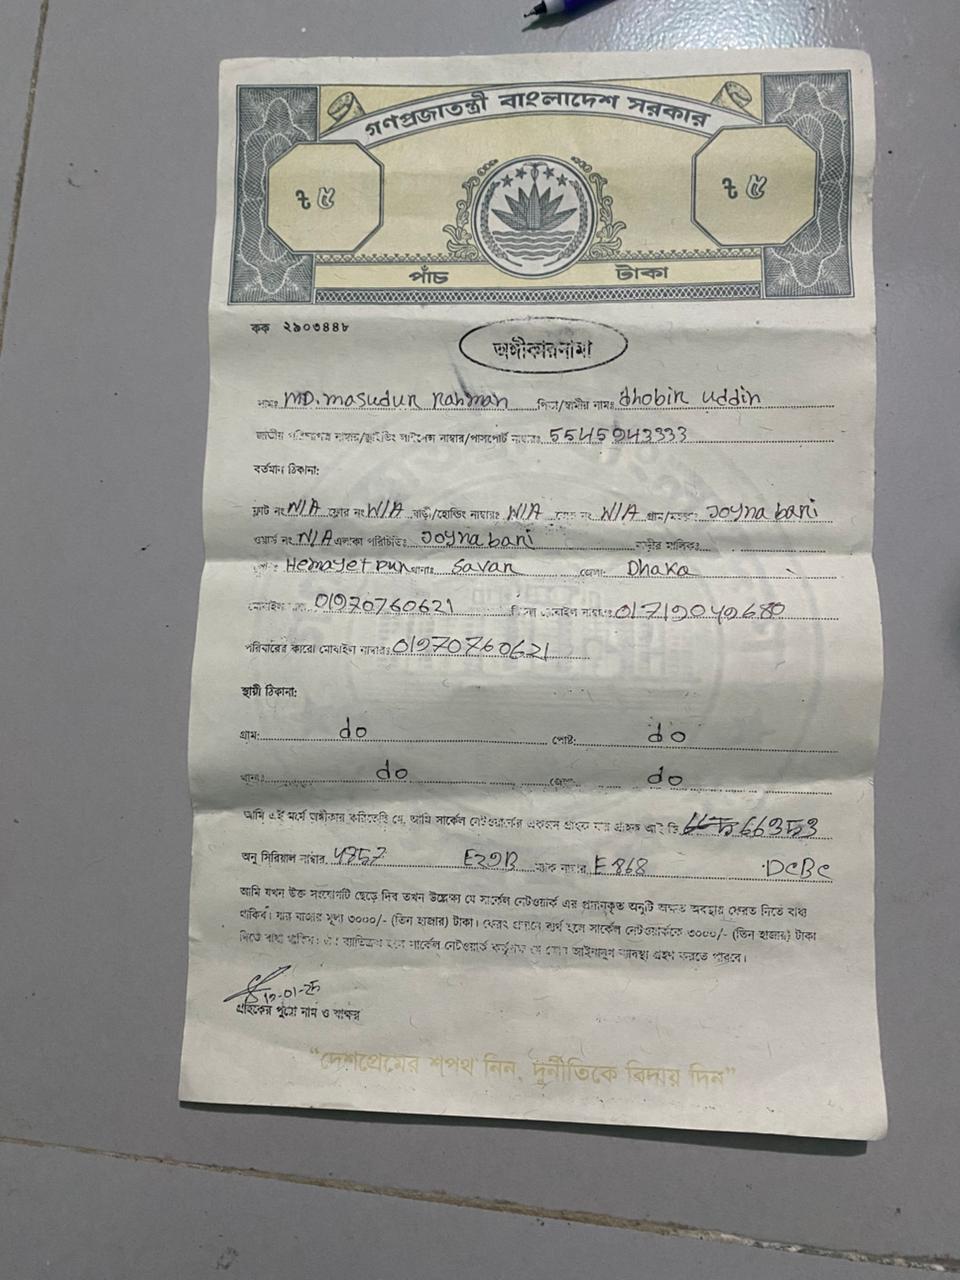 গণপ্রজাতন্ত্রী বাংলাদেশ সরকার
৳ ৫ ৳ ৫
পাঁচ টাকা
কক ২৯০৩৪৪৮
অঙ্গীকারনামা
নামঃ MD. masudur Rahman পিতা/স্বামীর নামঃ dhobir uddin
জাতীয় পরিচয়পত্র নাম্বার/ড্রাইভিং লাইসেন্স নাম্বার/পাসপোর্ট নাম্বারঃ 5545943333
বর্তমান ঠিকানা:
ফ্লাট নং N/A ফ্লোর নং N/A বাড়ী/হোল্ডিং নাম্বারঃ N/A রোড নং N/A গ্রাম/মহল্লাঃ Joyna bari
ওয়ার্ড নং N/A এলাকা পরিচিতিঃ Joyna bari বাড়ীর মালিকঃ
Hemayet pur থানাঃ Savar জেলাঃ Dhaka
মোবাইল 01970760621 মোবাইল নাম্বারঃ 01719049680
পরিবারের কারো মোবাইল নাম্বারঃ 01970760621
স্থায়ী ঠিকানা:
গ্রাম: do পোষ্ট: do
থানাঃ do জেলাঃ do
আমি এই মর্মে অঙ্গীকার করিতেছি যে, আমি সার্কেল নেটওয়ার্কের একজন গ্রাহক যার গ্রাহক আই ডি 66353
অনু সিরিয়াল নাম্বার 4757 EZ9B ম্যাক নাম্বার E 868 DCBC
আমি যখন উক্ত সংযোগটি ছেড়ে দিব তখন উল্লেক্ষ্য যে সার্কেল নেটওয়ার্ক এর প্রদানকৃত অনুটি অক্ষত অবস্থায় ফেরত দিতে বাধ্য
থাকিব। যার বাজার মূল্য ৩০০০/- (তিন হাজার) টাকা। ফেরৎ প্রদানে ব্যর্থ হলে সার্কেল নেটওয়ার্ককে ৩০০০/- (তিন হাজার) টাকা
দিতে বাধ্য থাকিব। ব্যতিক্রম হলে সার্কেল নেটওয়ার্ক কর্তৃপক্ষ যে কোন আইনানুগ ব্যবস্থা গ্রহণ করতে পারবে।
গ্রাহকের পুরো নাম ও স্বাক্ষর
"দেশপ্রেমের শপথ নিন, দুর্নীতিকে বিদায় দিন"